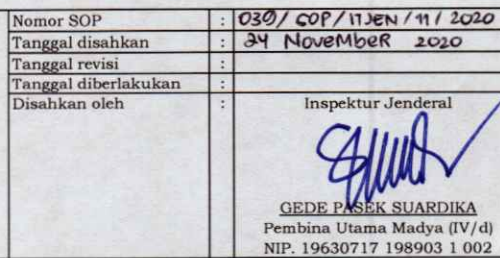 Nomor SOP : 039/SOP/ITJEN/11/2020
Tanggal disahkan : 24 November 2020
Tanggal revisi :
Tanggal diberlakukan :
Disahkan oleh : Inspektur Jenderal
GEDE PASEK SUARDIKA
Pembina Utama Madya (IV/d)
NIP. 19630717 198903 1 002